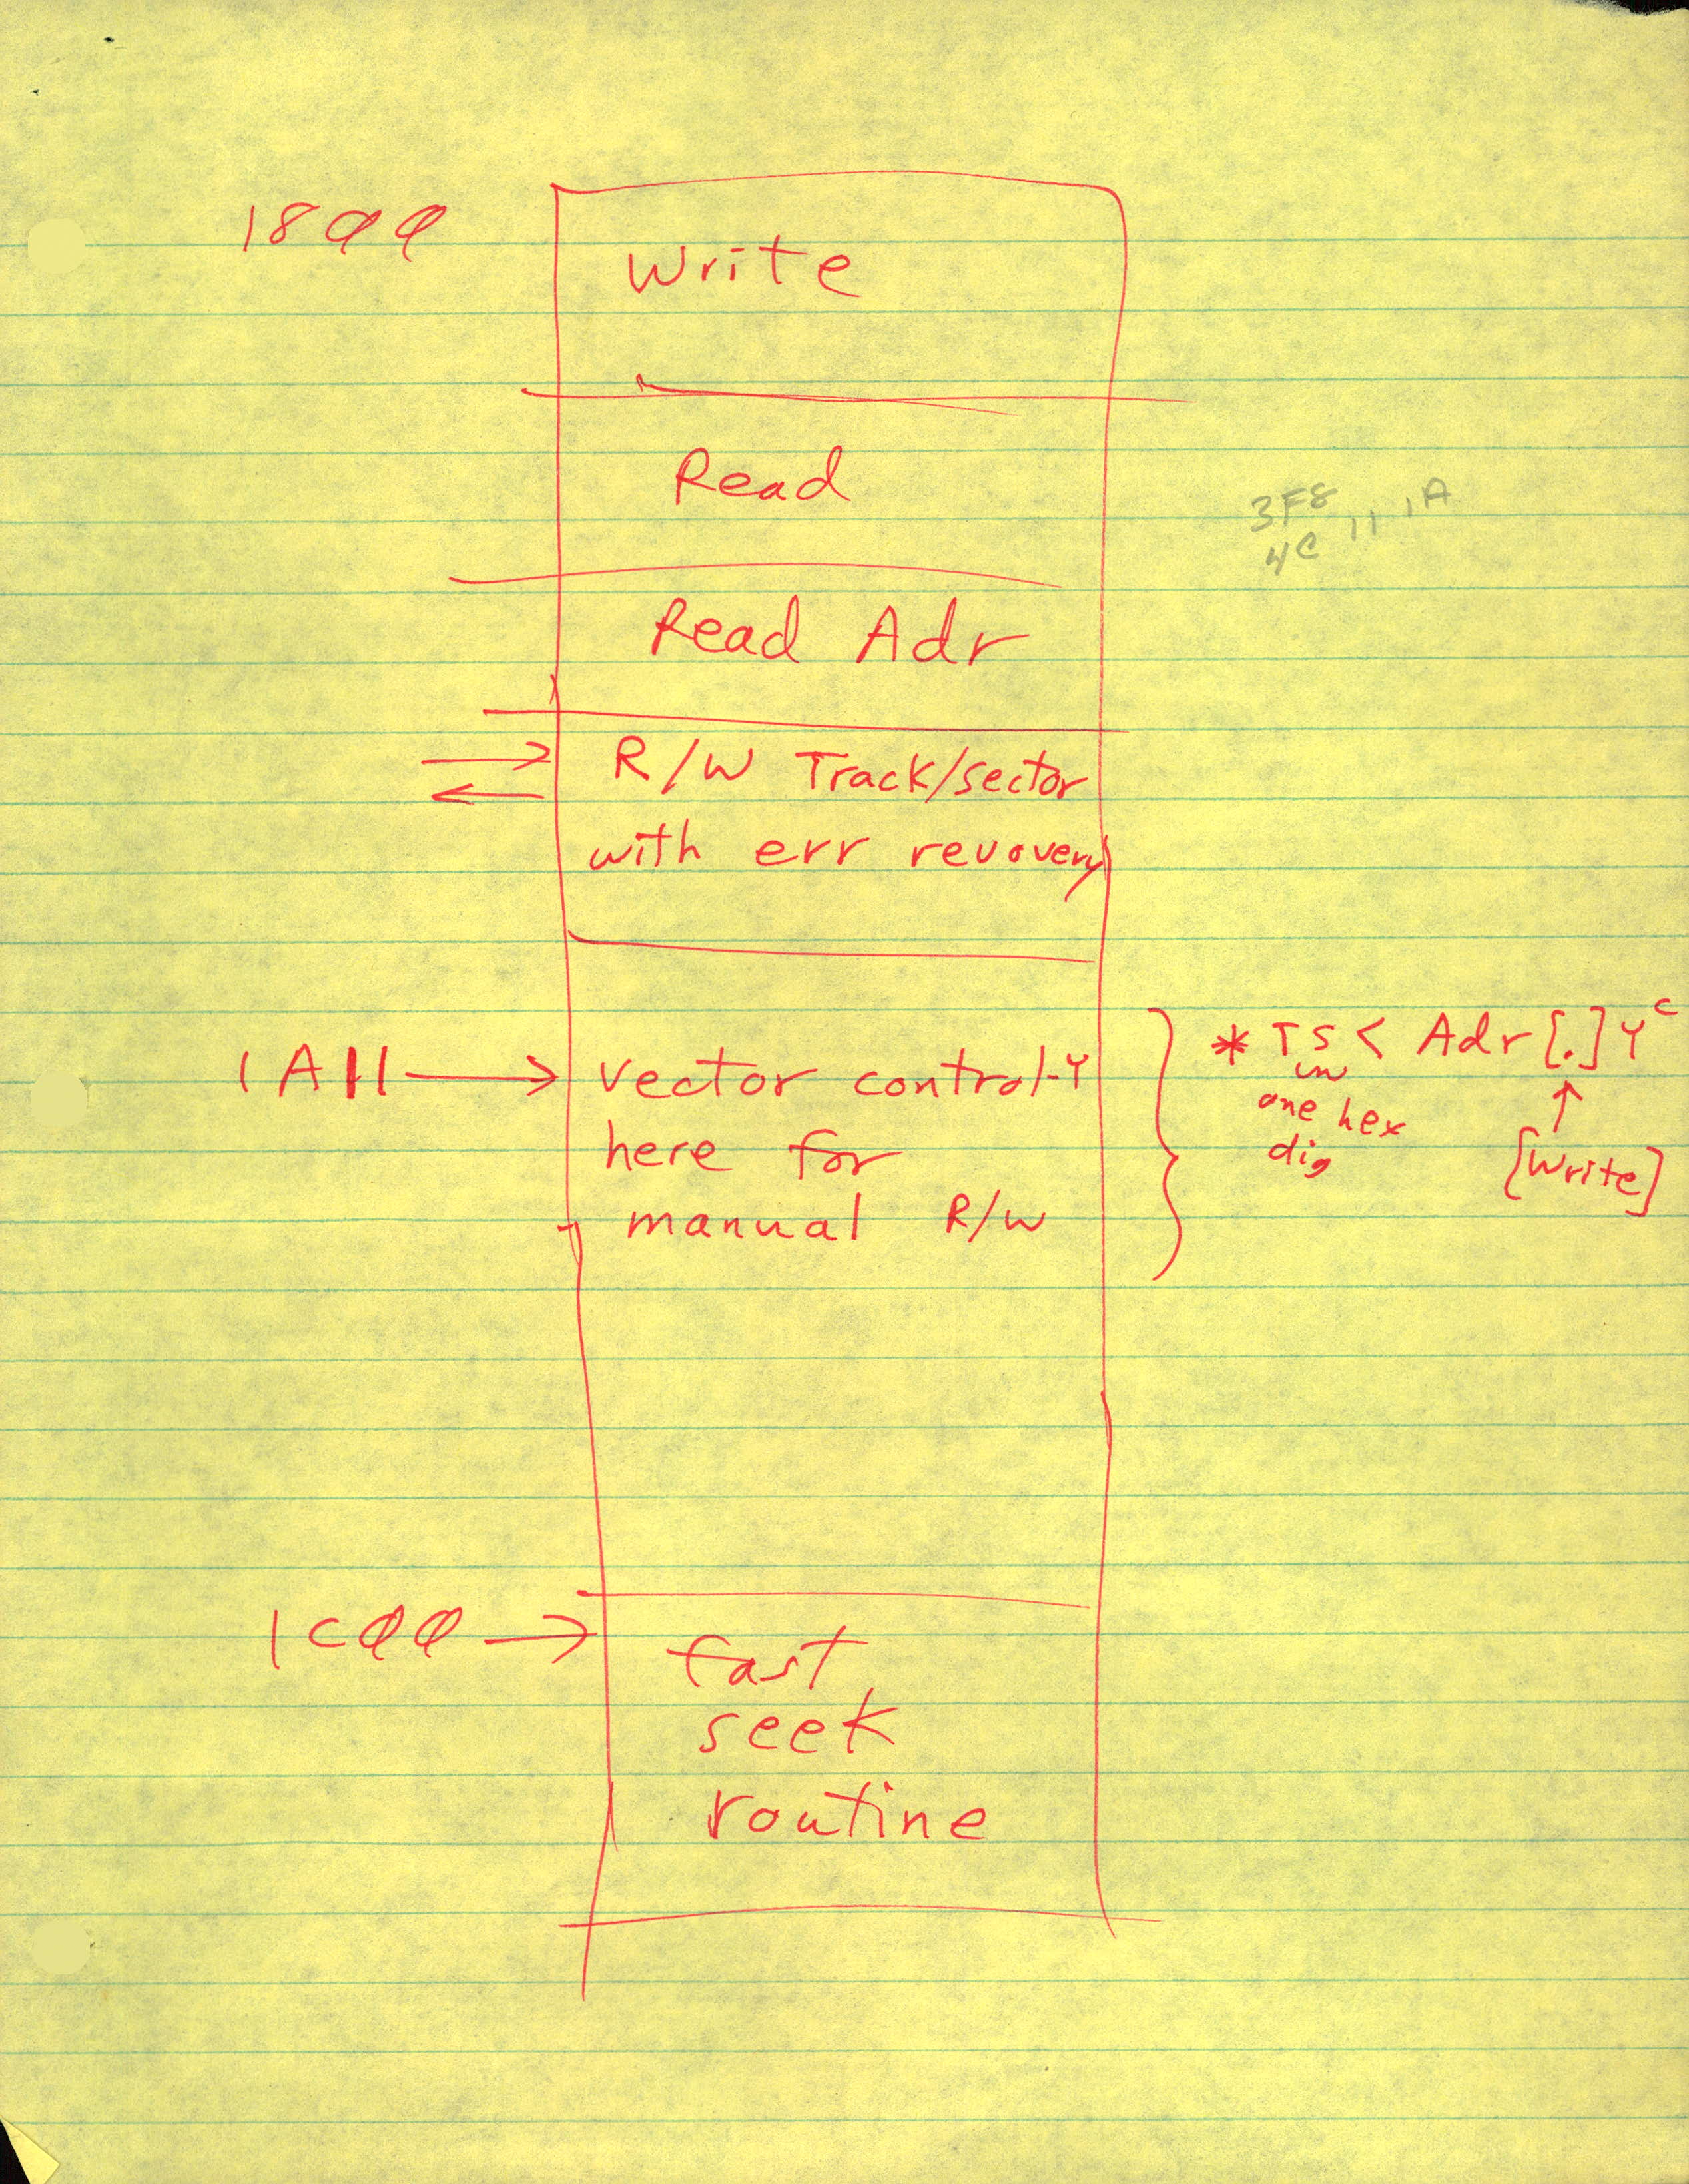 1800
Write
Read
3F8
4C 11 1A
Read Adr
R/W Track/sector
with err revovery
1A11 → vector control-Y
here for
manual R/W
* TS < Adr [.] Yc
one hex
dig
[Write]
1C00 → fast
seek
routine